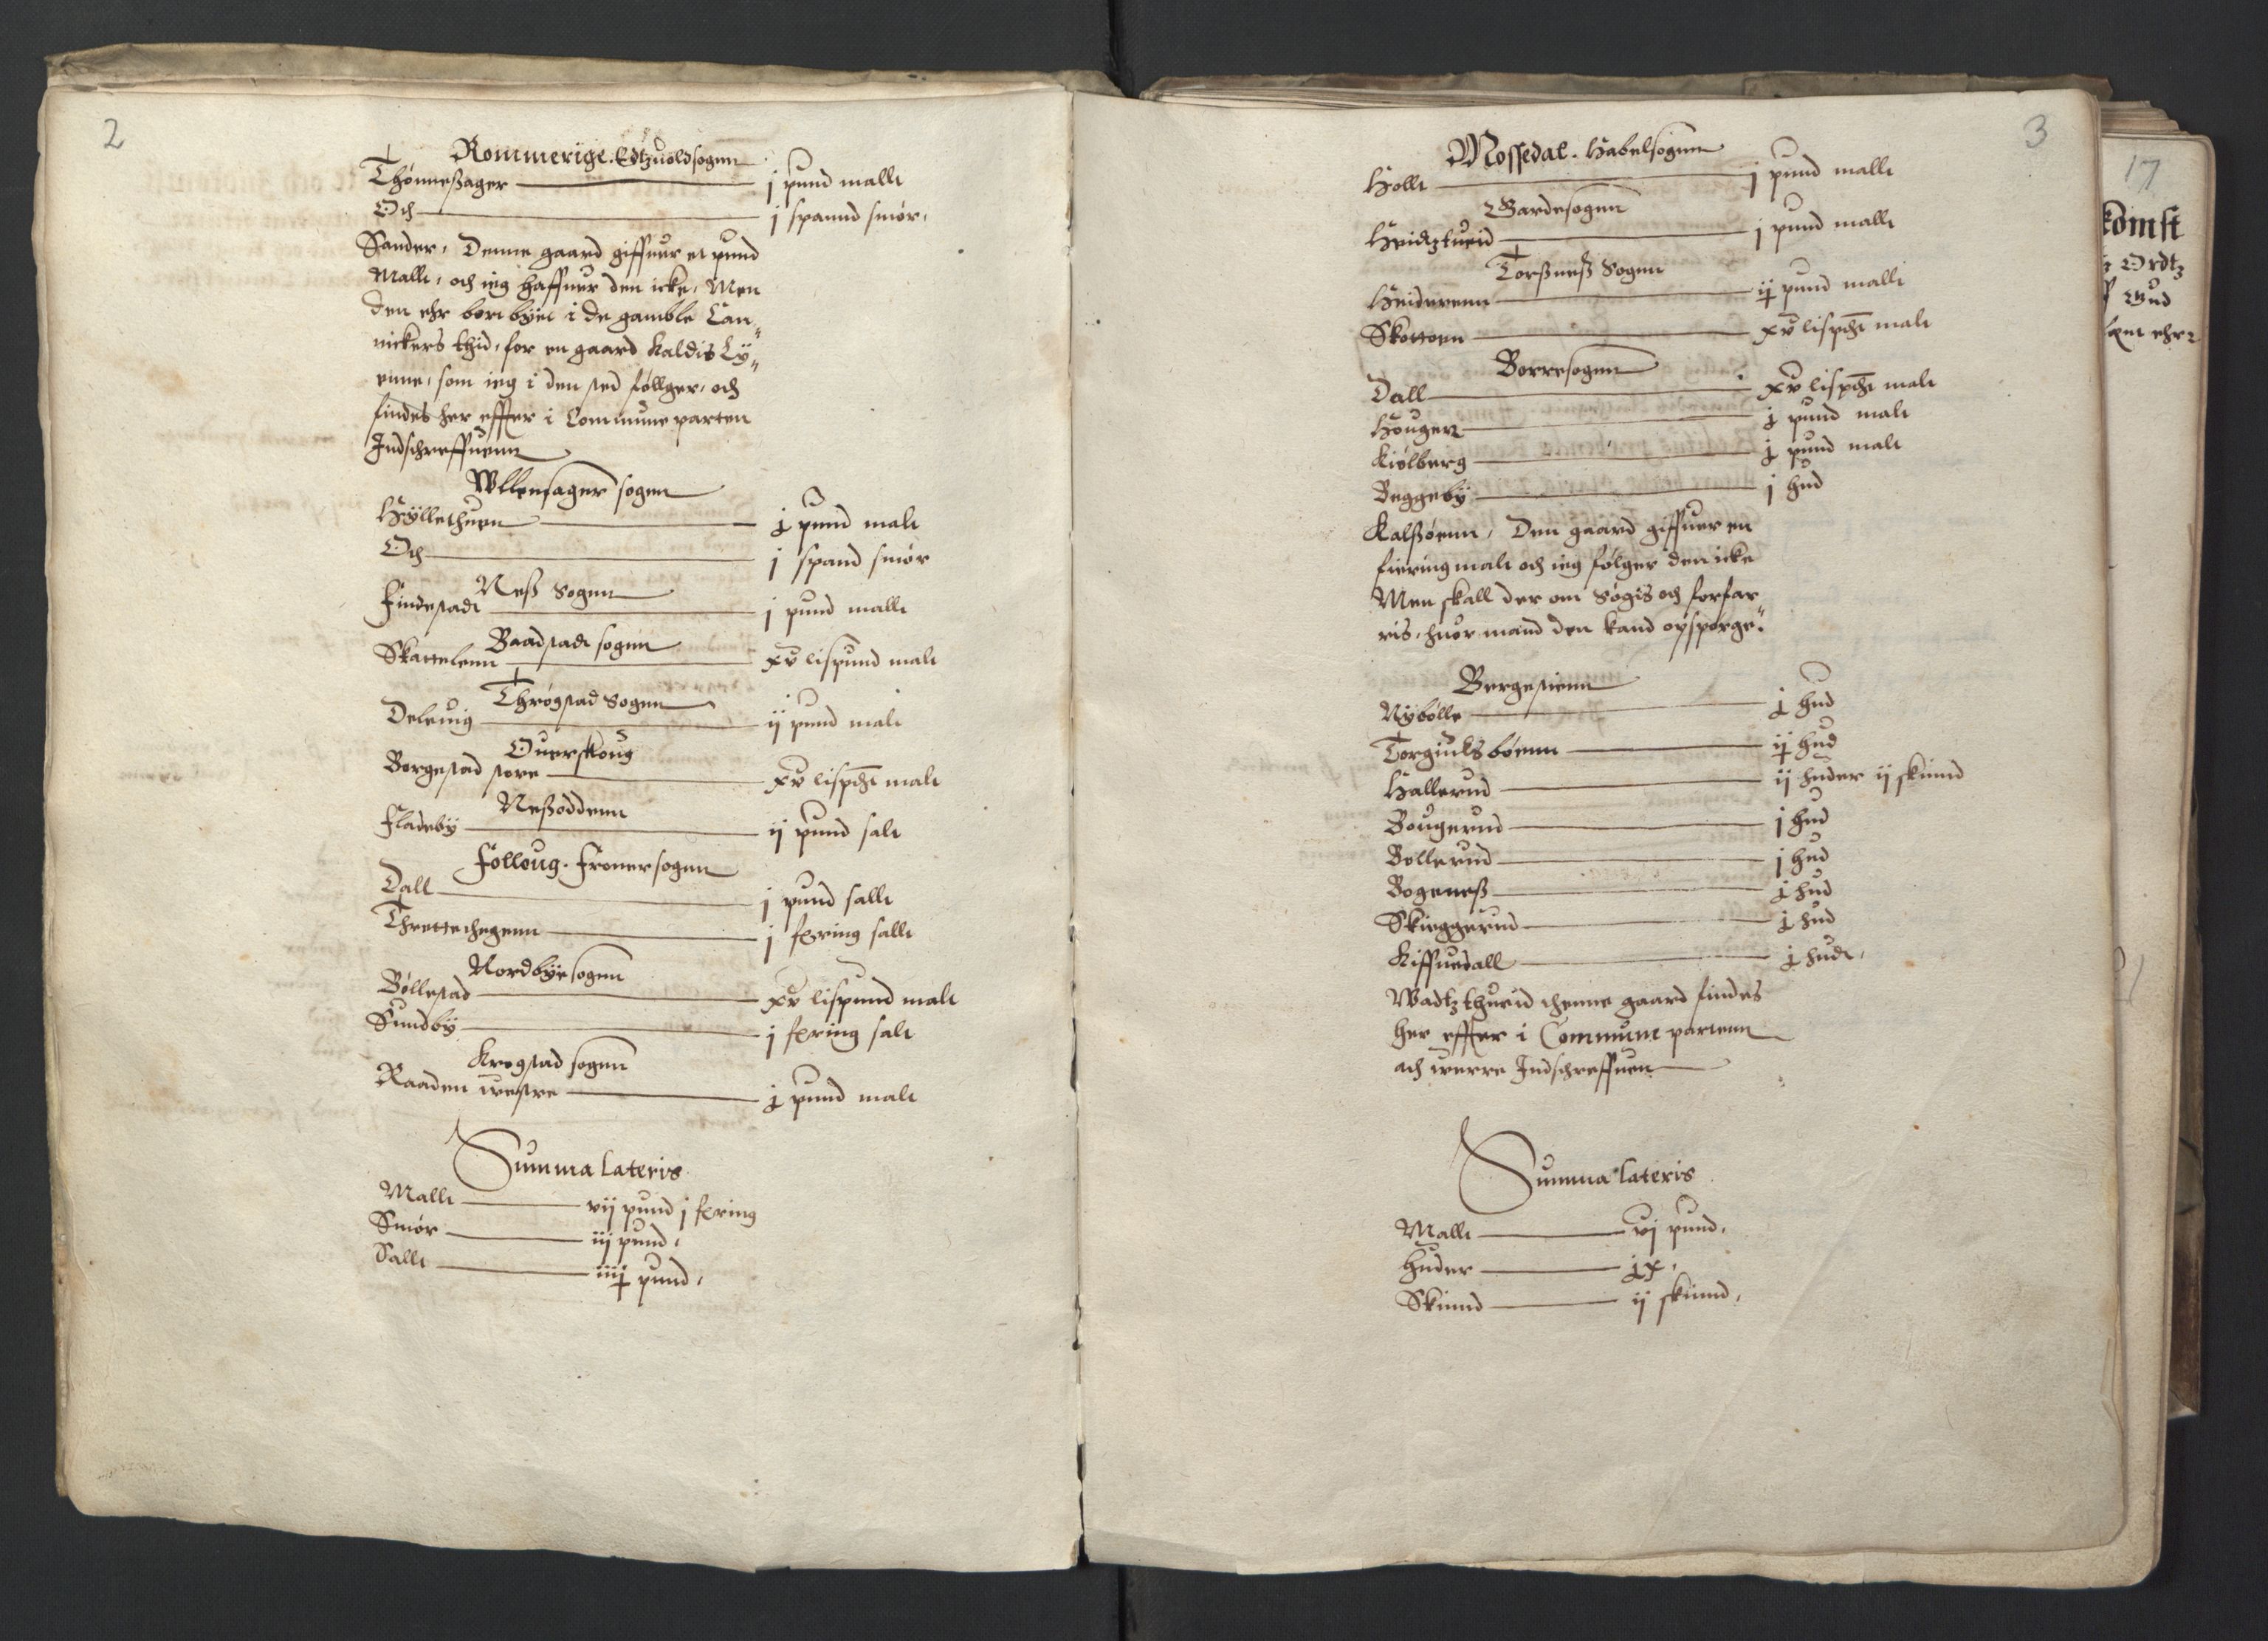 2
Rommerige. Edtzuoldsogenn
Thønneßager — j pund mallt
Och — j spannd smør,
Sander, Denne gaard giffuer et pund
Mallt, och ieg haffuer den icke, Men
den ehr bort bytt i de gamble Can„
nickers thid, for en gaard kaldis Ly„
enne, som ieg i den sted føllger, och
findes her effter i Commune parten
Indschreffuenn
Wllensager sogen
Hyllethuen — j pund malt
Och — j spand smør
Neß Sogen
Findestadt — j pund mallt
Baadstadt sogen
Skattelenn — xv lispund malt
Thrøgstad Sogenn
Deleuig — ij pund malt
Ouerskoug
Borgestad store — xv lispd malt
Neßoddenn
Fladeby — ij pund salt
Folloug. Fronersogenn
Dall — j pund sallt
Threttechegenn — j fering sallt
Nordbyesogen
Bøllestad — xv lispund malt
Sundby — j fering salt
Krogstad sogen
Raaden westre — j pund malt
Summa lateris
Mallt — vij pund j fering
Smør — iij pund,
Sallt — iiij pund,
3
Mossedal. Habelsogenn
Hollt — j pund mallt
Wardesogen
Heidtztueid — j pund mallt
Torßneß Sogen
Heiderenn — ij pund mallt
Skottoen — xv lispd malt
Borresogen
Dall — xv lispd malt
Houger — j pund malt
Kiølberg — j pund malt
Beggeby — j hud
Kalßøenn, Den gaard giffuer en
fiering malt och ieg følger den icke
Men skall der om Søgis och forfar
ris, huor mand den kand opsperge.
Bergestienn
Nybølle — j hud
Torgiulsbøenn — ij hud
Hallerud — ij huder ij skiind
Bougerud — j hud
Bollerud — j hud
Bogeneß — j hud
Skieggerud — j hud
Kiffuedall — j hudt,
Wadtzthueid thenne gaard findes
her effter i Commune partenn
att werre Indschreffuen
Summa lateris
Mallt — vj pund,
Huder — jx,
Skiind — ij skiind,
17
komst
Ordtz
Gud
ehr